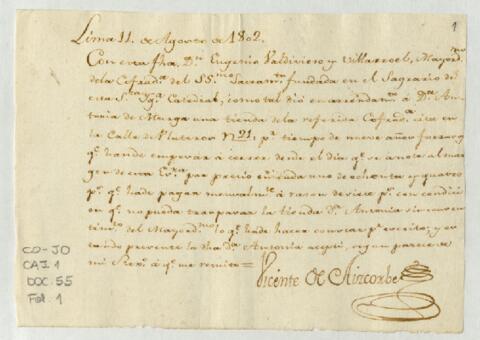 1
Lima 11. de Agosto de 1802.
Con esta fha. Dn. Eugenio Valdivieso y Villarroel, Mayordmo
de la Cofradia. del SSmo Sacramto. fundada en el Sagrario de
esta Sta Yga. Catedral, como tal dió en arrendamto. à Da. An
tonia de Murga una tienda de la referida Cofradia. sita en
la Calle de Plateros No 21, pr. tiempo de nueve años forzosos
qe. han de empezar à correr desde el dia qe. se anote al mar
gen de esta por precio en cada uno de ochenta y quatro
ps. qe. hade pagar mensualmte. à razon de siete ps. con condicion
en qe. no pueda traspasar la tienda Da. Antonia sin consen
timto. del Mayordmo. lo qe. hade hacer constar pr. escrito; y es
tando presente la dha Da. Antonia aceptó, segun parece de
mi Rexo. à qe. me remito =
Vicente de Aizcorbe
CO-JO
CAJ 1
DOC. 55
Fol. 1